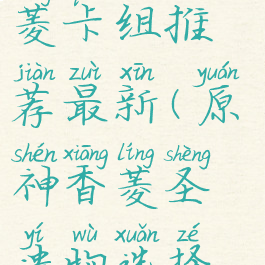 菱卡组推
jiàn zuì xīn yuán
荐最新(原
shén xiāng líng shèng
神香菱圣
yí wù xuǎn zé
遗物选择